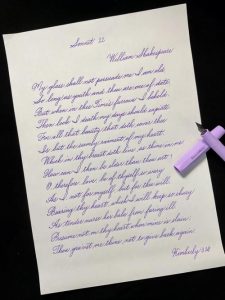 Sonnet 22
William Shakespeare
My glass shall not persuade me I am old,
So long as youth and thou are of one date;
But when in thee time's furrows I behold,
Then look I death my days should expiate.
For all that beauty that doth cover thee
Is but the seemly raiment of my heart,
Which in thy breast doth live, as thine in me:
How can I then be elder than thou art?
O, therefore, love, be of thyself so wary
As I, not for myself, but for thee will;
Bearing thy heart, which I will keep so chary
As tender nurse her babe from faring ill.
Presume not on thy heart when mine is slain;
Thou gavest me thine, not to give back again.
Kimberly